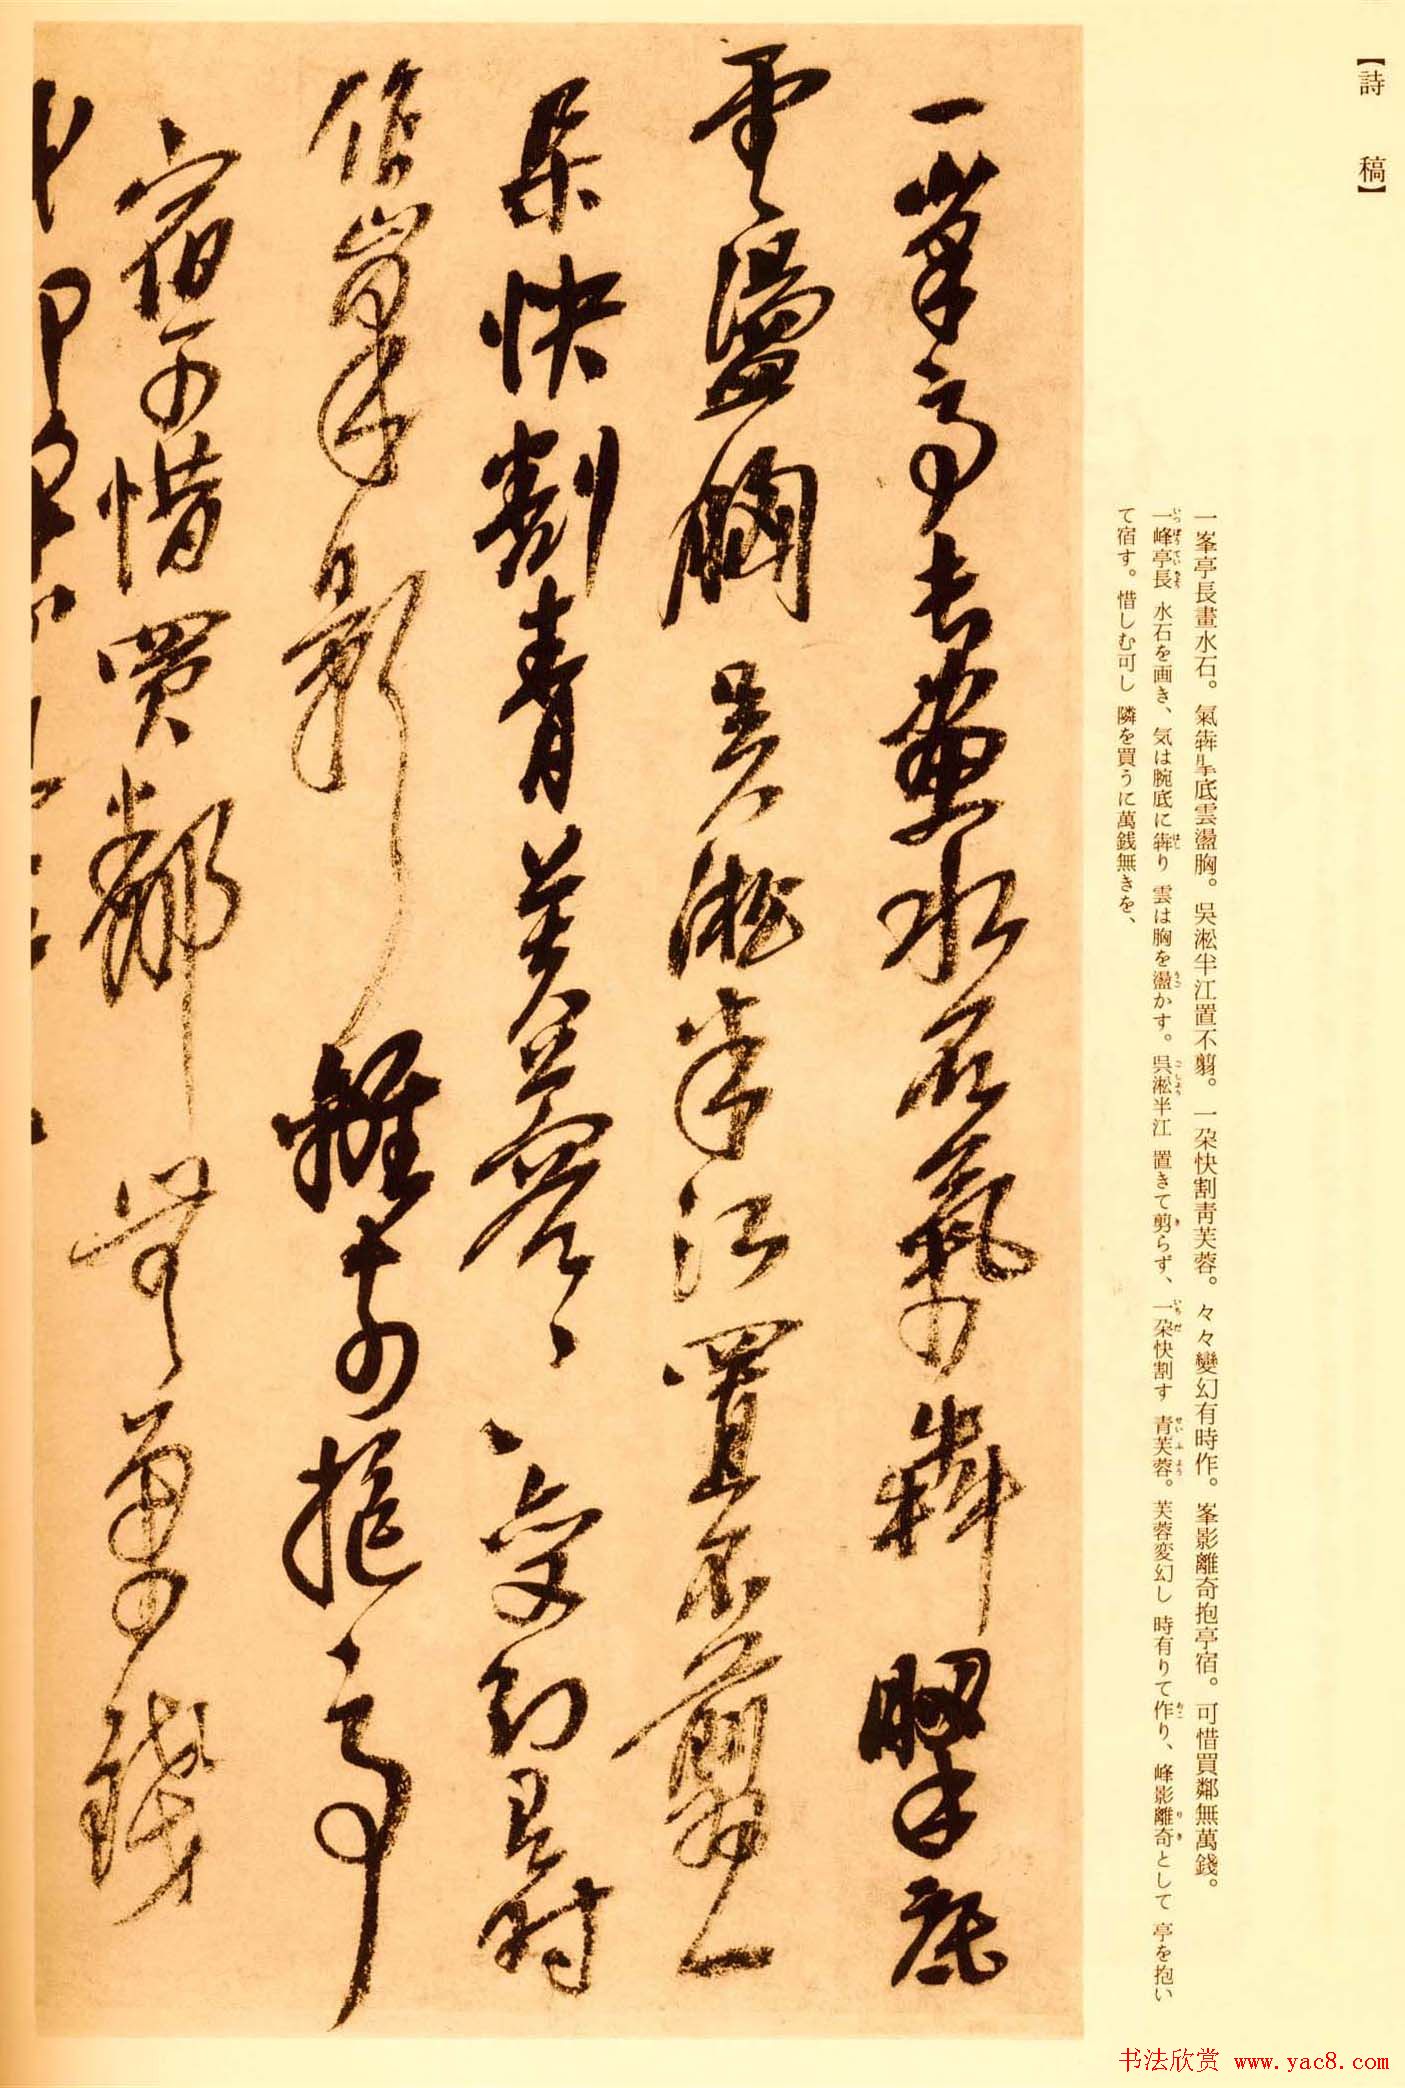 【詩稿】
一峯亭長畫水石。氣犇𦥑底雲盪胸。吳淞半江置不翦。一朶快割靑芙蓉。々々變幻有時作。峯影離奇抱亭宿。可惜買鄰無萬錢。
一峰亭長 水石を画き、気は腕底に犇り 雲は胸を盪かす。呉淞半江 置きて剪らず、一朶快割す 青芙蓉。芙蓉変幻し 時有りて作り、峰影離奇として 亭を抱い
て宿す。惜しむ可し 隣を買うに萬銭無きを、
一峯亭長畫水石氣犇掔底
雲盪胸吳淞半江置不翦一
朶快割青芙蓉々々變幻有時
作峯影離奇抱亭
宿可惜買鄰無萬錢
书法欣赏 www.yac8.com